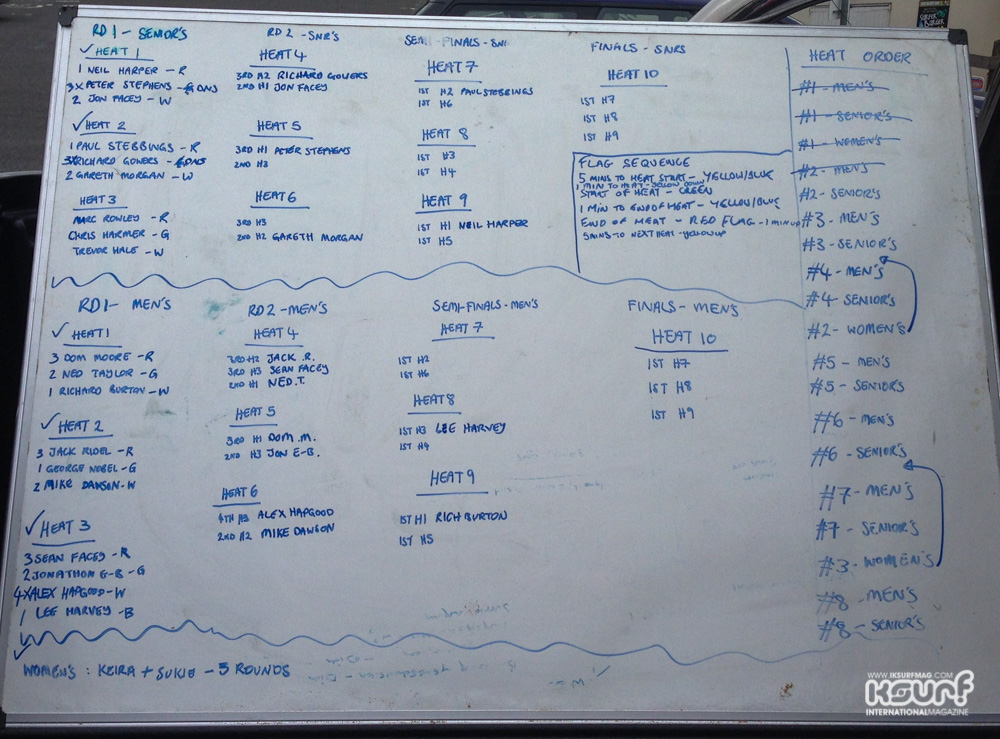 RD1 - SENIOR'S
✓ HEAT 1
1 NEIL HARPER - R
3 x PETER STEPHENS - G DNS
2 JON FACEY - W
✓ HEAT 2
1 PAUL STEBBINGS - R
3x RICHARD GOWERS - G DNS
2 GARETH MORGAN - W
HEAT 3
MARC ROWLEY - R
CHRIS HARMER - G
TREVOR HALE - W
RD 2 - SNR'S
HEAT 4
3RD H2 RICHARD GOWERS
2ND H1 JON FACEY
HEAT 5
3RD H1 PETER STEPHENS
2ND H3
HEAT 6
3RD H3
2ND H2 GARETH MORGAN
SEMI-FINALS - SNR
HEAT 7
1ST H2 PAUL STEBBINGS
1ST H6
HEAT 8
1ST H3
1ST H4
HEAT 9
1ST H1 NEIL HARPER
1ST H5
FINALS - SNRS
HEAT 10
1ST H7
1ST H8
1ST H9
FLAG SEQUENCE
5 MINS TO HEAT START - YELLOW/BLUE
1 MIN TO HEAT - YELLOW DOWN
START OF HEAT - GREEN
1 MIN TO END OF HEAT - YELLOW/BLUE
END OF HEAT - RED FLAG - 1 MIN UP
5MINS TO NEXT HEAT - YELLOW UP
RD1 - MEN'S
✓ HEAT 1
3 DOM MOORE - R
2 NED TAYLOR - G
1 RICHARD BURTON - W
✓ HEAT 2
3 JACK RIDEL - R
1 GEORGE NOBEL - G
2 MIKE DAWSON - W
✓ HEAT 3
3 SEAN FACEY - R
2 JONATHON E-B - G
4x ALEX HAPGOOD - W
1 LEE HARVEY - B
RD2 - MEN'S
HEAT 4
3RD H2 JACK .R.
3RD H3 SEAN FACEY
2ND H1 NED.T.
HEAT 5
3RD H1 DOM.M.
2ND H3 JON E-B.
HEAT 6
4TH H3 ALEX HAPGOOD
2ND H2 MIKE DAWSON
SEMI-FINALS - MEN'S
HEAT 7
1ST H2
1ST H6
HEAT 8
1ST H3 LEE HARVEY
1ST H4
HEAT 9
1ST H1 RICH BURTON
1ST H5
FINALS - MEN'S
HEAT 10
1ST H7
1ST H8
1ST H9
WOMEN'S : KEIRA + SUKIE - 5 ROUNDS
HEAT ORDER
#1 - MEN'S
#1 - SENIOR'S
#1 - WOMEN'S
#2 - MEN'S
#2 - SENIOR'S
#3 - MEN'S
#3 - SENIOR'S
#4 - MEN'S
#4 - SENIOR'S
#2 - WOMEN'S
#5 - MEN'S
#5 - SENIOR'S
#6 - MEN'S
#6 - SENIOR'S
#7 - MEN'S
#7 - SENIOR'S
#3 - WOMEN'S
#8 - MEN'S
#8 - SENIOR'S
WWW.IKSURFMAG.COM
IKSURF
INTERNATIONALMAGAZINE